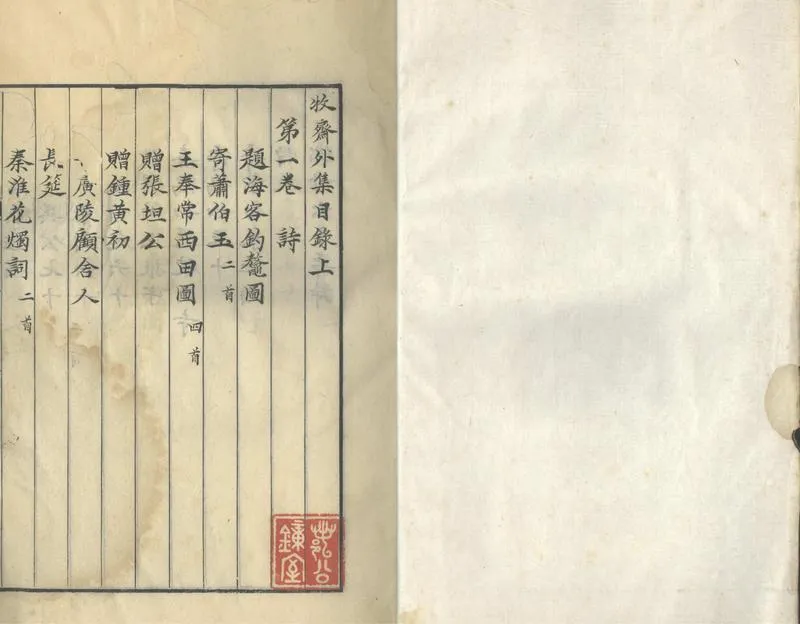 牧齋外集目錄上
第一卷 詩
題海客釣鼇圖
寄蕭伯玉 二首
王奉常西田圖 四首
贈張坦公
贈鍾黃初
廣陵顧舍人
長筵
秦淮花燭詞 二首